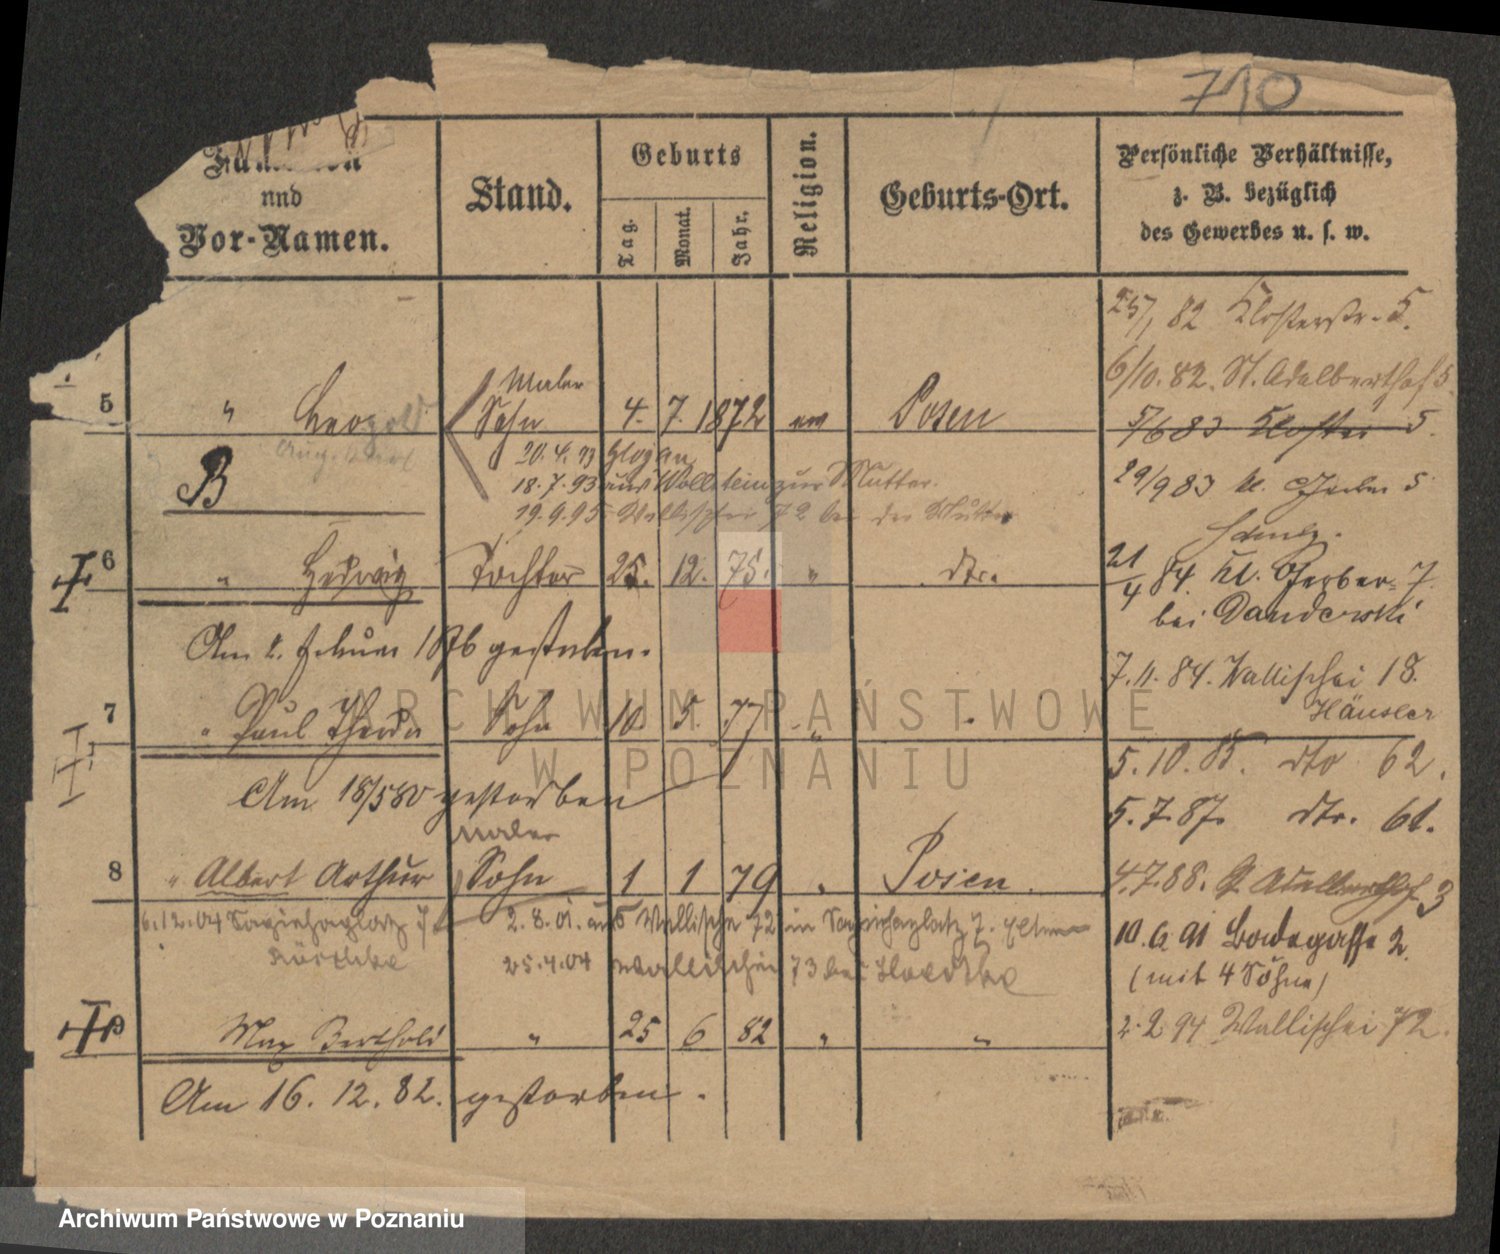 710
Familien
und
Vor-Namen.
Stand.
Geburts
Tag.
Monat.
Jahr.
Religion.
Geburts-Ort.
Persönliche Verhältnisse,
z. B. bezüglich
des Gewerbes u. s. w.
25/, 82 Klosterstr. 5.
6/10. 82. St. Adalberthof 3
Maler
5 " Leopold Sohn 4. 7. 1872 ev Posen
5/6 83 Kloster 5.
20. 4. 93 Glogau
B
18. 7. 93 aus Wollstein zur Mutter.
29/9 83 kl. Gerber 5
19. 9. 95 Wallischei 72 bei der Mutter
6 " Hedwig Tochter 25. 12. 75. " dto.
21/4 84. kl. Gerber 7.
bei Dandowski
Am 2. Februar 1876 gestorben.
7. 11. 84. Wallischei 18.
Häusler
7 " Paul Theodor Sohn 10. 5. 77 " "
5. 10. 85. dto 62.
Am 18/5 80 gestorben
5. 7. 87. dto. 61.
Maler
8 " Albert Arthur Sohn 1 1 79 " Posen.
4. 7. 88. St. Adalberthof 3
6. 12. 04 Sapiehaplatz 7
2. 8. 01. aus Wallischei 72 in Sapiehaplatz 7.
10. 6. 91 Badegasse 2.
25. 4. 04 Wallischei 73 bei
(mit 4 Söhne)
9 Max Berthold " 25 6 82 " "
2. 2. 94 Wallischei 72.
Am 16. 12. 82. gestorben.
ARCHIWUM PAŃSTWOWE
W POZNANIU
Archiwum Państwowe w Poznaniu